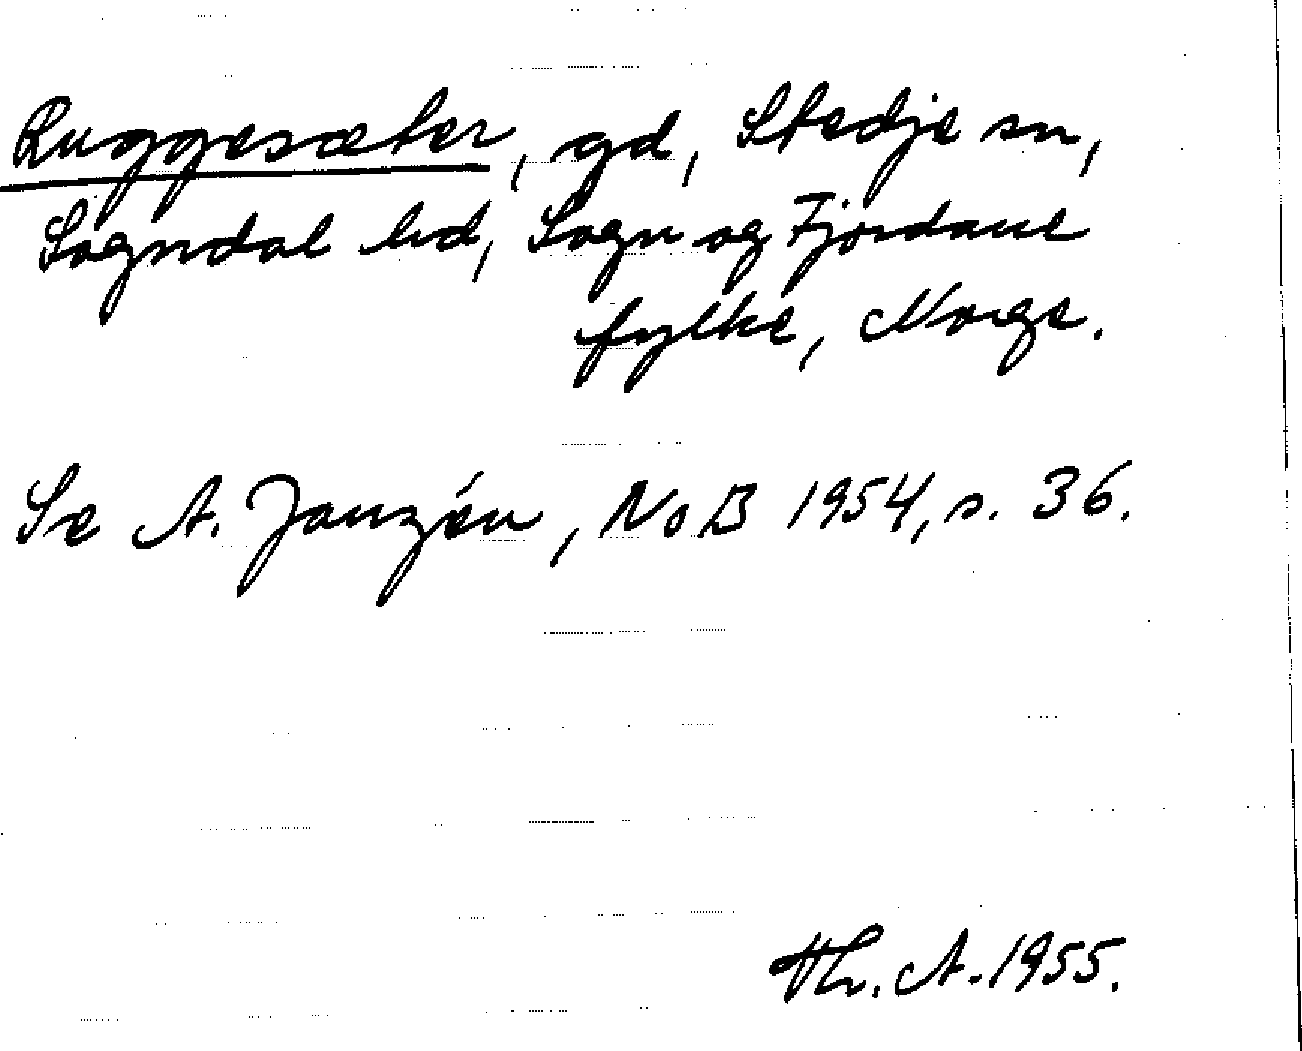 Ruggesæter, gd, Stedje sn,
Sogndal hd, Sogn og Fjordane
fylke, Norge.
Se A. Janzén, NoB 1954, s. 36.
Th. A. 1955.